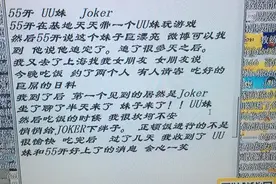 55开 UU妹 Joker
55开在基地天天带一个UU妹玩游戏
然后55开说这个妹子巨漂亮 微博可以找
到 他说他追定了。追了很多天之后。
我又去了上海找我女朋友 女朋友说
今晚吃饭 约了两个人 有人请客 吃好的
巨屌的日料
我到了后 第一个见到的居然是Joker
坐了聊了半天来了 妹子来了!! UU妹
然后吃饭的时候 我很扰埒不安
悄悄给JOKER下绊子。 正顿饭进行的不是
很愉快 吃完后 过了几天 我收到了 UU
妹和55开好上了的消息 会心一笑